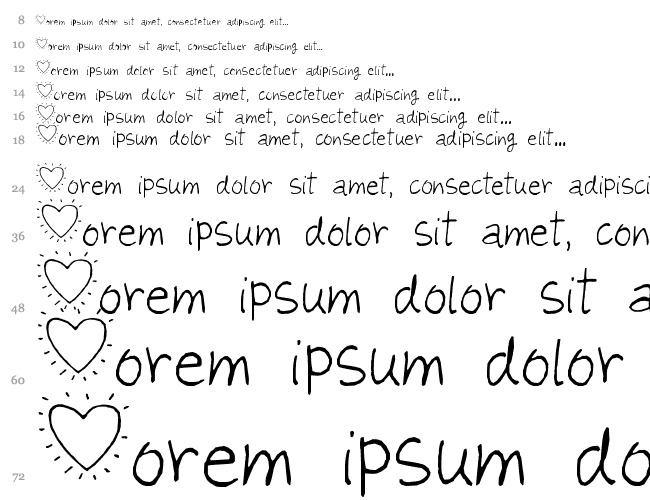 8 orem ipsum dolor sit amet, consectetuer adipiscing elit...
10 orem ipsum dolor sit amet, consectetuer adipiscing elit...
12 orem ipsum dolor sit amet, consectetuer adipiscing elit...
14 orem ipsum dolor sit amet, consectetuer adipiscing elit...
16 orem ipsum dolor sit amet, consectetuer adipiscing elit...
18 orem ipsum dolor sit amet, consectetuer adipiscing elit...
24 orem ipsum dolor sit amet, consectetuer adipisci
36 orem ipsum dolor sit amet, con
48 orem ipsum dolor sit a
60 orem ipsum dolor
72 orem ipsum do